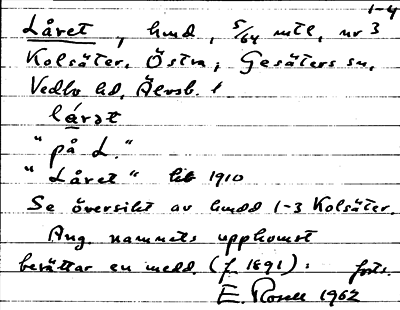 1-4
Låret, hmd, 5/64 mtl, nr 3
Kolsäter, Östra, Gesäters sn,
Vedbo hd, Älvsb. l
lår̥ət
"på L."
"Låret" hb 1910
Se översikt av hmdd 1-3 Kolsäter.
Ang. namnets uppkomst
berättar en medd. (f. 1891): forts.
E. Rosell 1962